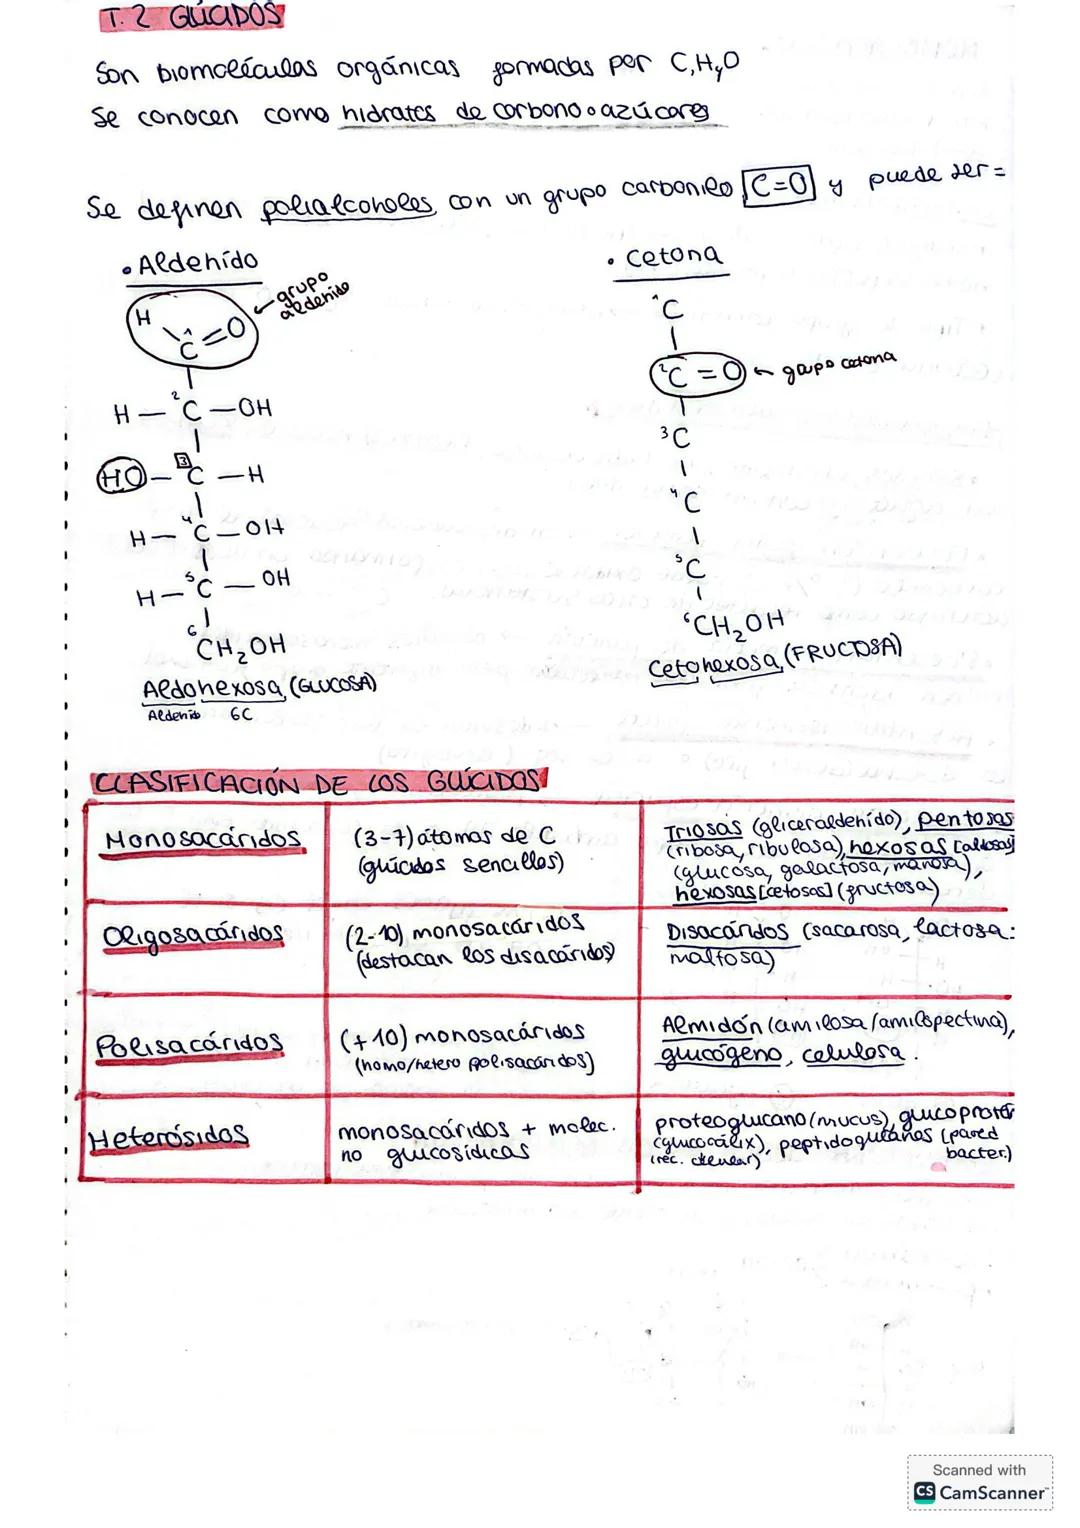 T. 2 GLÚCIDOS
Son biomoléculas orgánicas formadas por C, H y O
Se conocen como hidratos de carbono o azúcares
Se definen polialcoholes con un grupo carbonilo C=O y puede ser =
• Aldehído
• Cetona
grupo aldehído
H
1C = O
H — 2C — OH
HO — 3C — H
H — 4C — OH
H — 5C — OH
6CH₂OH
Aldohexosa (GLUCOSA)
Aldehído 6C
1C
2C = O ← grupo cetona
3C
4C
5C
6CH₂OH
Cetohexosa (FRUCTOSA)
CLASIFICACIÓN DE LOS GLÚCIDOS
Monosacáridos
(3-7) átomos de C
(glúcidos sencillos)
Triosas (gliceraldehído), pentosas
(ribosa, ribulosa), hexosas [aldosas]
(glucosa, galactosa, manosa),
hexosas [cetosas] (fructosa)
Oligosacáridos
(2-10) monosacáridos
(destacan los disacáridos)
Disacáridos (sacarosa, lactosa:
maltosa)
Polisacáridos
(+10) monosacáridos
(homo/hetero polisacáridos)
Almidón (amilosa/amilopectina),
glucógeno, celulosa.
Heterósidos
monosacáridos + molec.
no glucosídicas
proteoglucano (mucus), glucoprotei
(glucocálix), peptidoglucanos (pared
(rec. celular) bacter.)
Scanned with
CS CamScanner